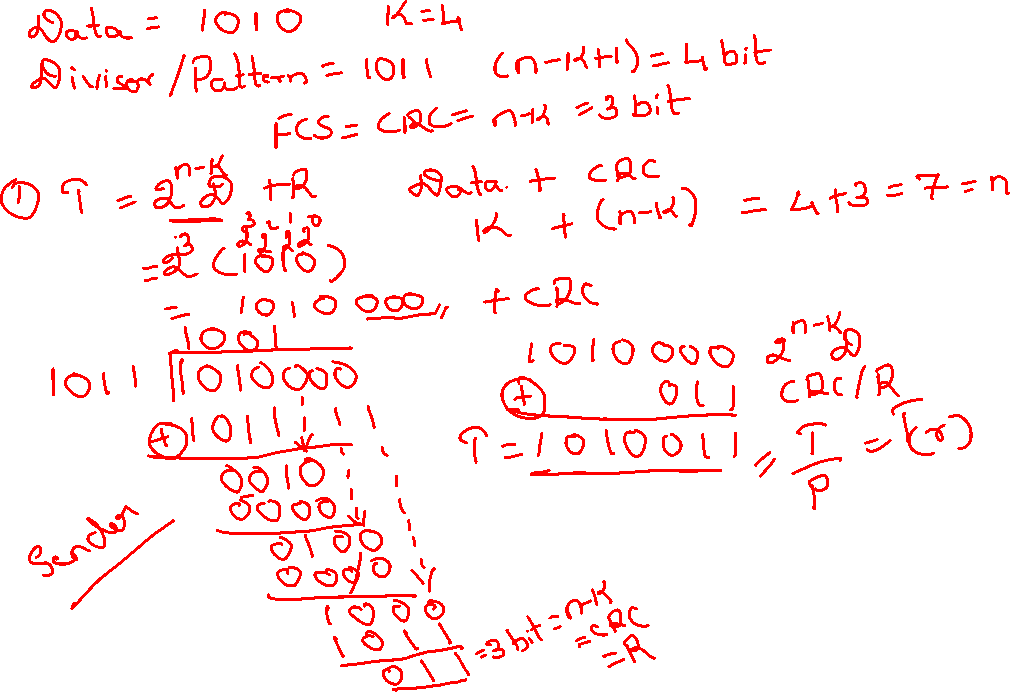 Data = 1010 K=4
Divisor/Pattern = 1011 (n-k+1) = 4 bit
FCS = CRC = n-k = 3 bit
① T = 2^{n-k} D + R Data + CRC
K + (n-k) = 4+3 = 7 = n
2^3 2^2 2^1 2^0
= 2^3 (1010)
= 1010 000,, + CRC
1001
1011 1010000
⊕ 1011
0010
0000
0100
0000
1000
1011
011 = 3 bit = n-k
= CRC
= R
Sender
1010000 2^{n-k} D
⊕ 011 CRC/R
T = 1010011 = T/P = T(r)